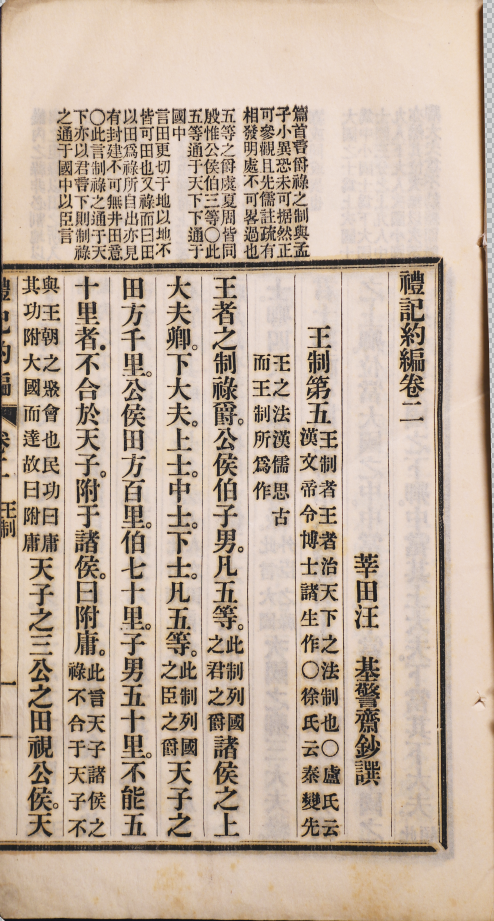 篇首言爵祿之制與孟
子小異恐未可據然正
可參觀且先儒註疏有
相發明處不可畧過也
五等之爵虞夏周皆同
殷惟公侯伯三等〇此
五等通于天下下通于
國中
言田更切于地以地不
皆可田也又祿而曰田
以田爲祿所自出亦見
有封建不可無井田意
〇此言制祿之通于天
下亦以君言下則制祿
之通于國中以臣言
禮記約編卷二
莘田汪 基警齋鈔譔
王制第五 王制者王者治天下之法制也〇盧氏云
漢文帝令博士諸生作〇徐氏云秦變先
王之法漢儒思古
而王制所爲作
王者之制祿爵。公侯伯子男。凡五等。此制列國之君之爵諸侯之上
大夫卿。下大夫。上士。中士。下士。凡五等。此制列國之臣之爵天子之
田方千里。公侯田方百里。伯七十里。子男五十里。不能五
十里者。不合於天子。附于諸侯。曰附庸。此言天子諸侯之祿不合于天子不
與王朝之聚會也民功曰庸其功附大國而達故曰附庸天子之三公之田視公侯。天
禮記約編 卷二 王制 一